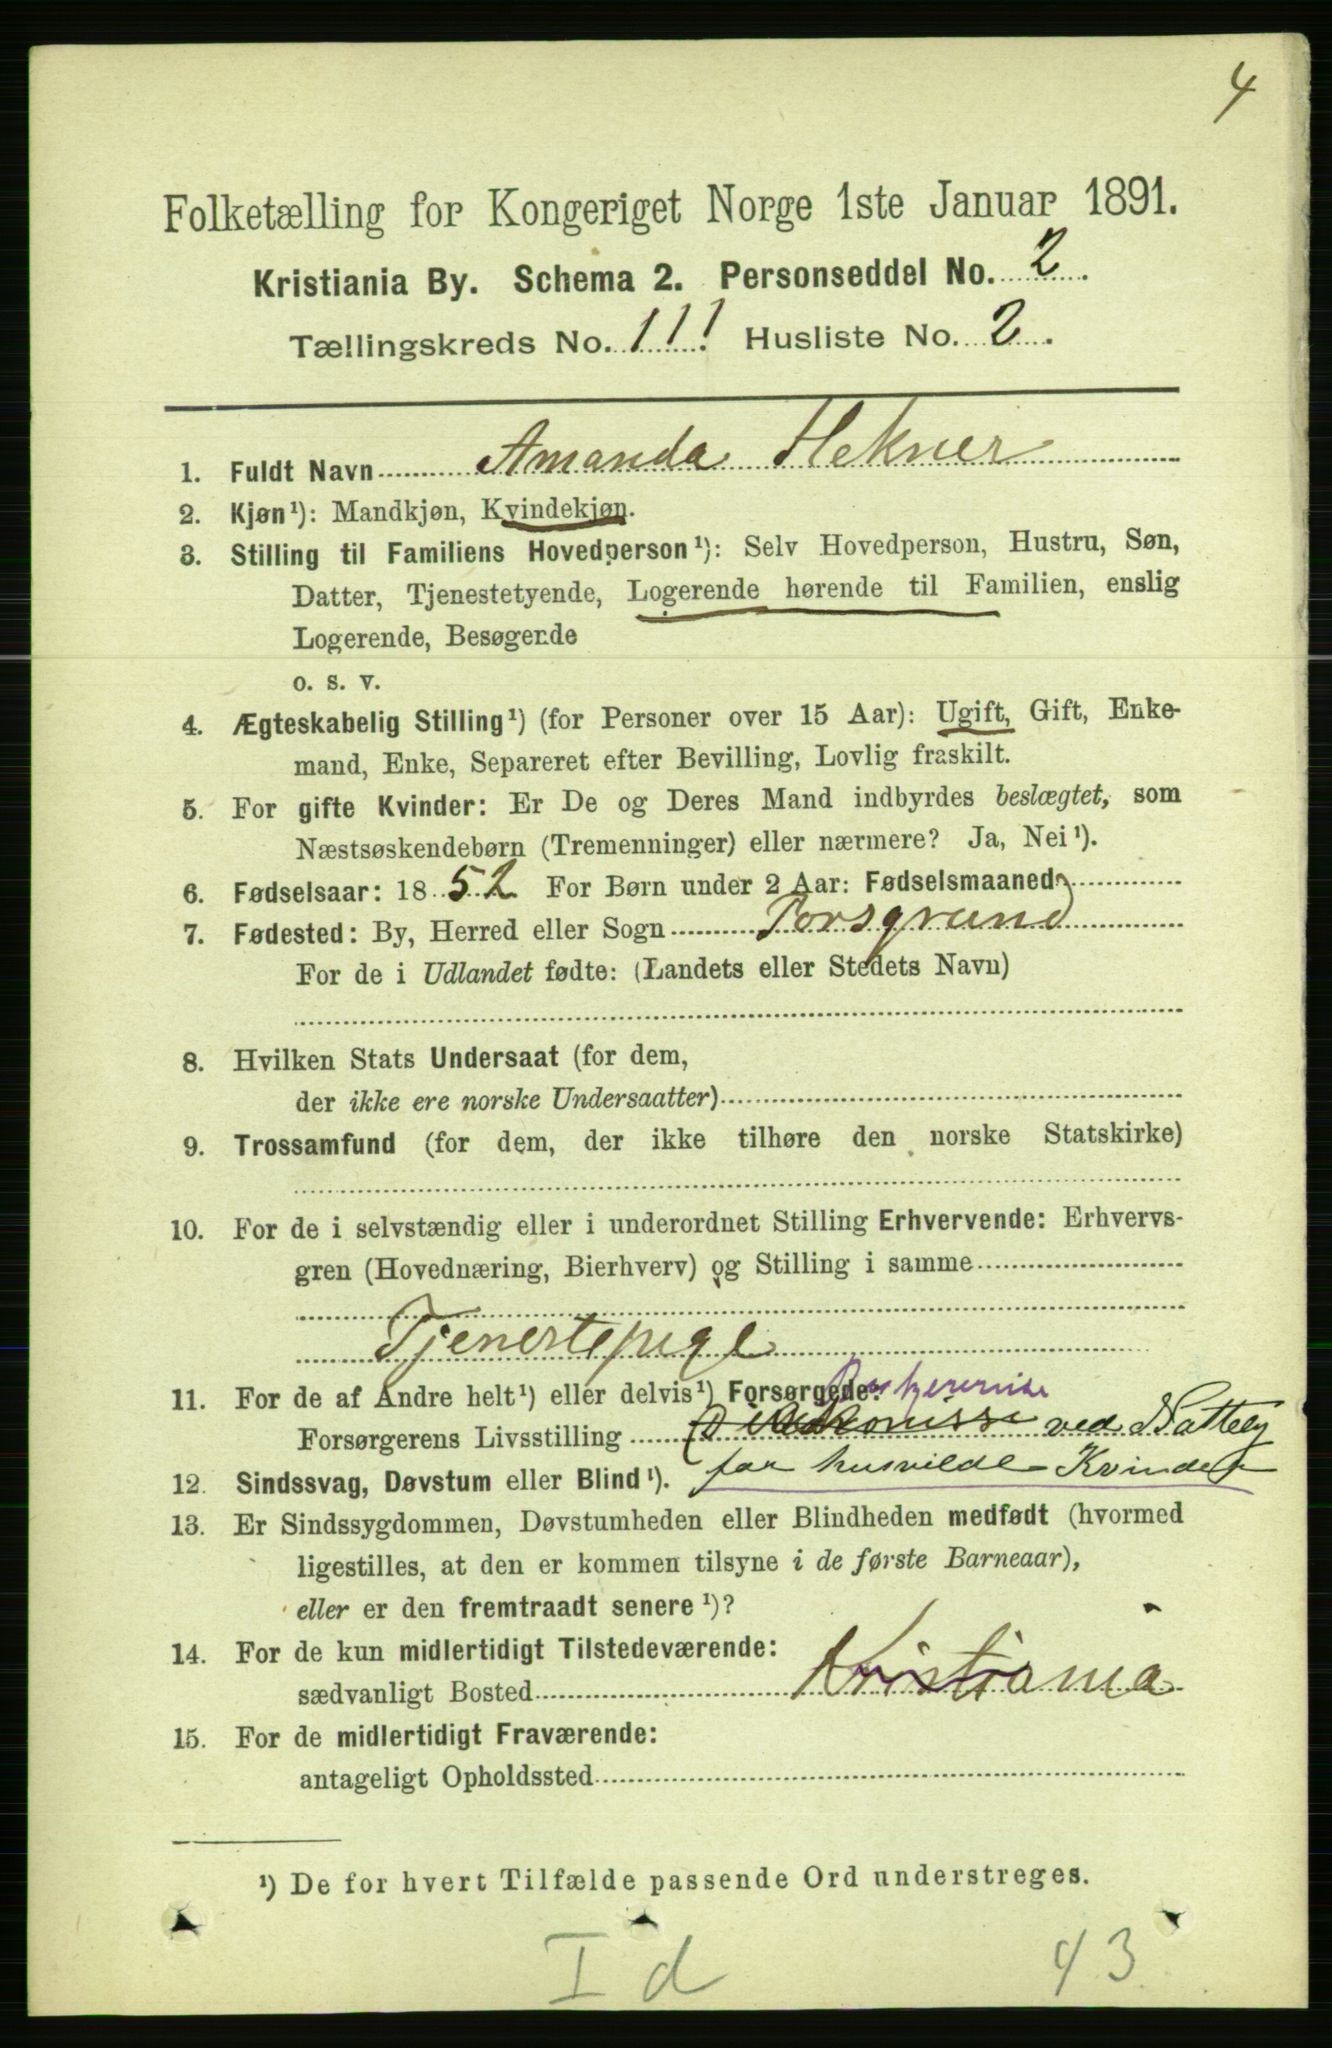 4
Folketælling for Kongeriget Norge 1ste Januar 1891.
Kristiania By. Schema 2. Personseddel No. 2.
Tællingskreds No. 111 Husliste No. 2.
1. Fuldt Navn Amanda Hekner
2. Kjøn¹): Mandkjøn, Kvindekjøn.
3. Stilling til Familiens Hovedperson¹): Selv Hovedperson, Hustru, Søn,
Datter, Tjenestetyende, Logerende hørende til Familien, enslig
Logerende, Besøgende
o. s. v.
4. Ægteskabelig Stilling¹) (for Personer over 15 Aar): Ugift, Gift, Enke-
mand, Enke, Separeret efter Bevilling, Lovlig fraskilt.
5. For gifte Kvinder: Er De og Deres Mand indbyrdes beslægtet, som
Næstsøskendebørn (Tremenninger) eller nærmere? Ja, Nei¹).
6. Fødselsaar: 1852 For Børn under 2 Aar: Fødselsmaaned
7. Fødested: By, Herred eller Sogn Porsgrund
For de i Udlandet fødte: (Landets eller Stedets Navn)
8. Hvilken Stats Undersaat (for dem,
der ikke ere norske Undersaatter)
9. Trossamfund (for dem, der ikke tilhøre den norske Statskirke)
10. For de i selvstændig eller i underordnet Stilling Erhvervende: Erhvervs-
gren (Hovednæring, Bierhverv) og Stilling i samme
Tjenestepige
11. For de af Andre helt¹) eller delvis¹) Forsørgede:
Forsørgerens Livsstilling ved Nattely
12. Sindssvag, Døvstum eller Blind¹). for husvilde Kvinder
13. Er Sindssygdommen, Døvstumheden eller Blindheden medfødt (hvormed
ligestilles, at den er kommen tilsyne i de første Barneaar),
eller er den fremtraadt senere¹)?
14. For de kun midlertidigt Tilstedeværende:
sædvanligt Bosted Kristiania
15. For de midlertidigt Fraværende:
antageligt Opholdssted
¹) De for hvert Tilfælde passende Ord understreges.
I d 43